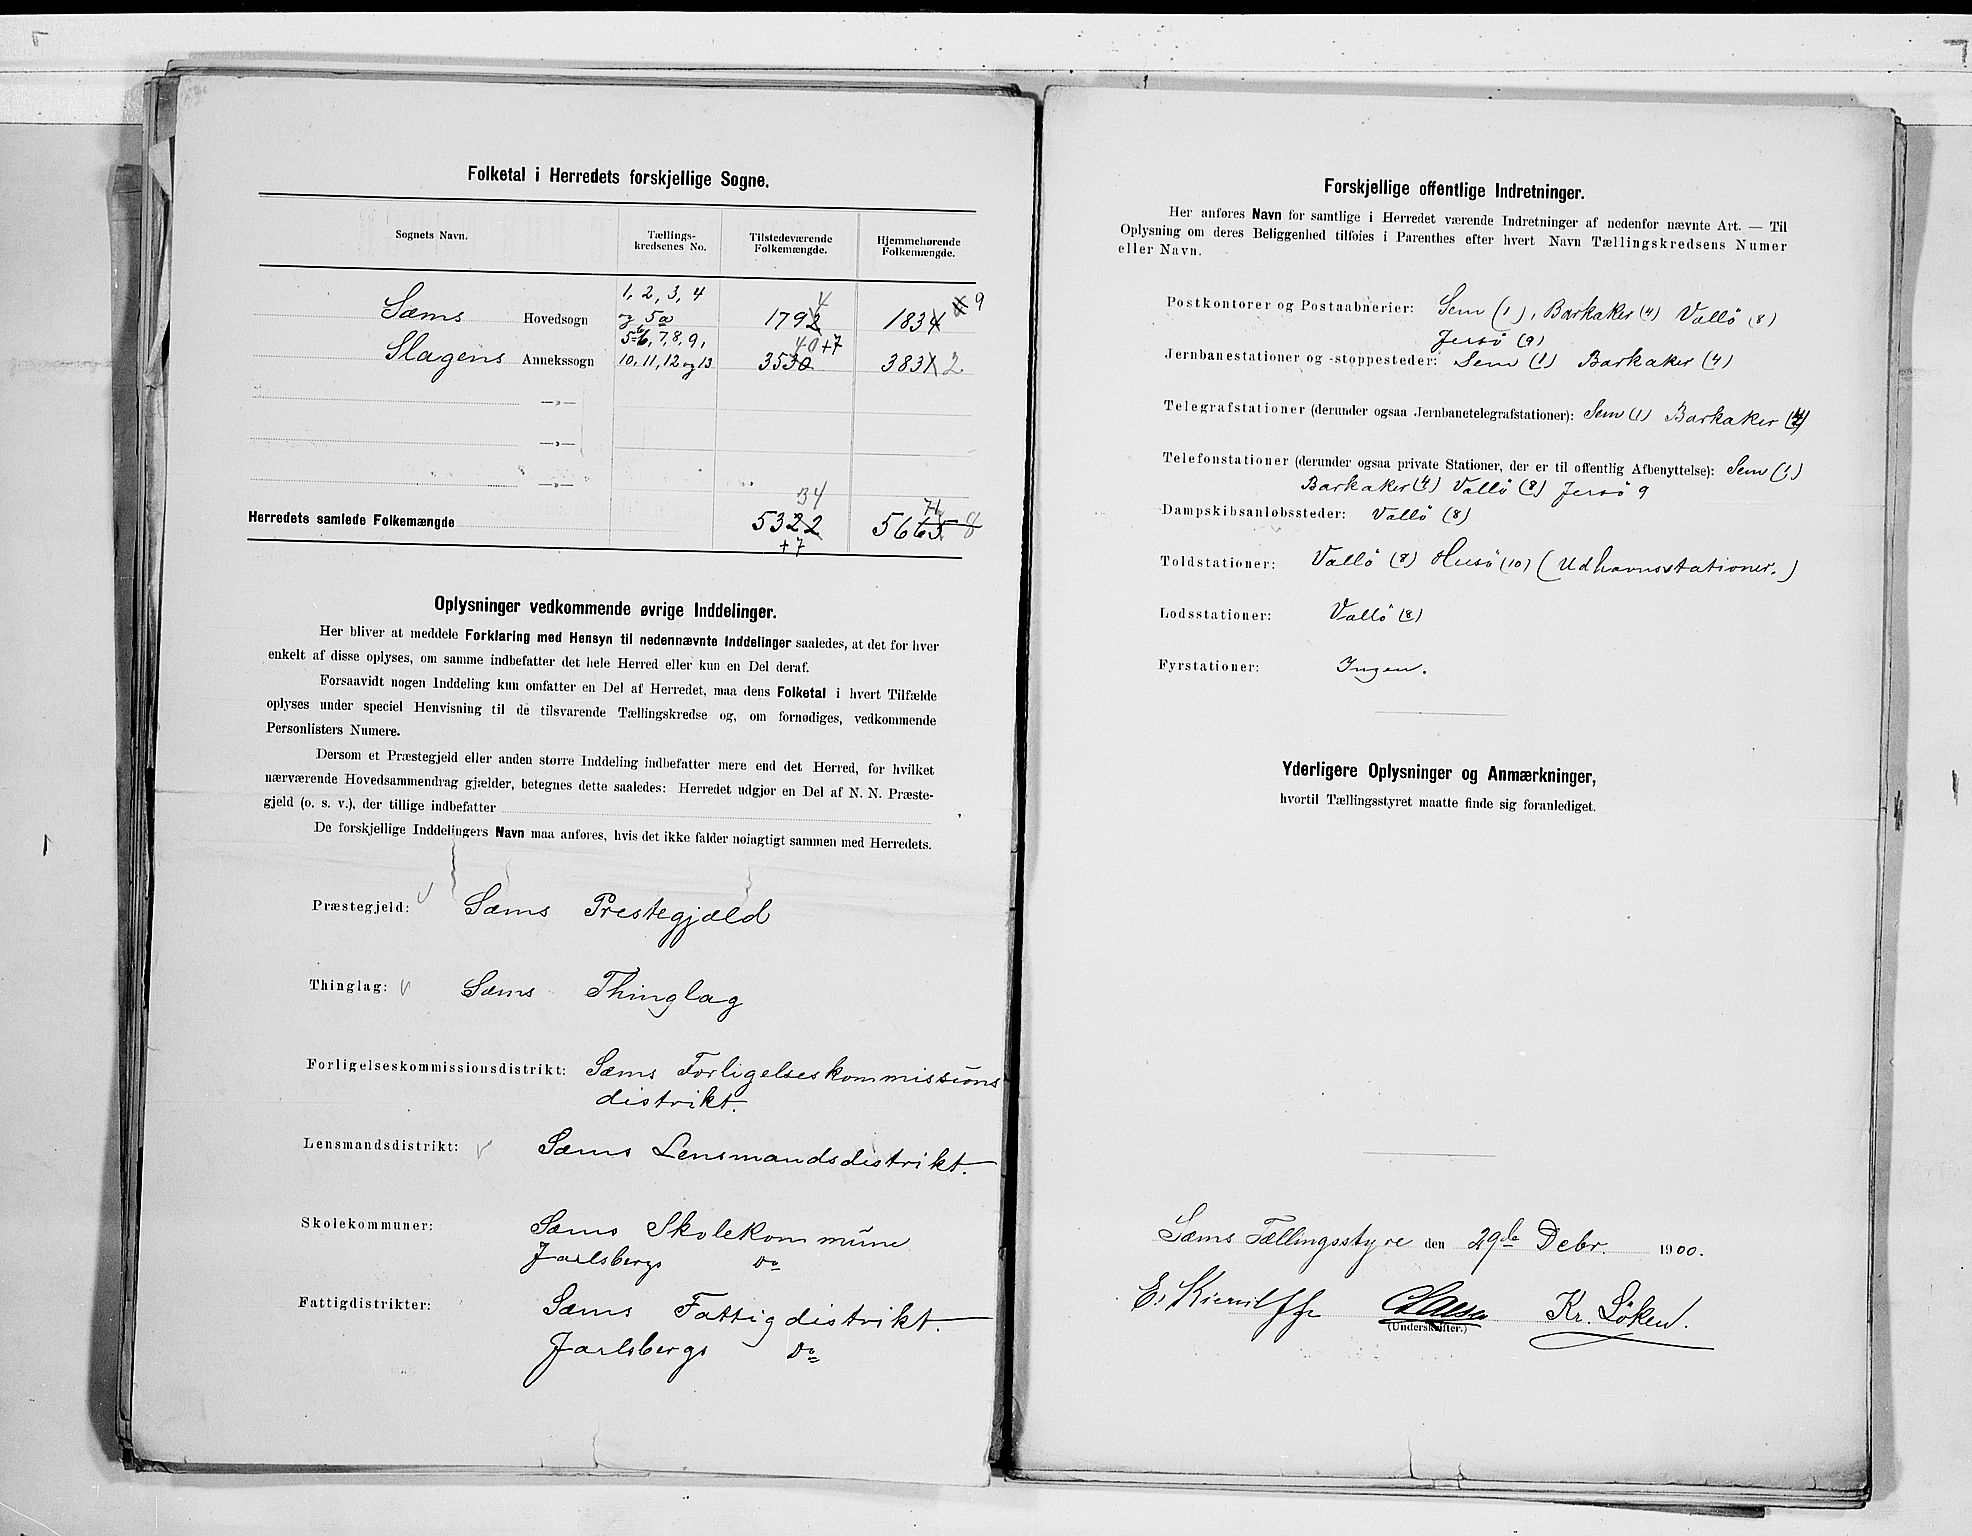 Folketal i Herredets forskjellige Sogne.
Sognets Navn. Tællings-kredsenes No. Tilstedeværende Folkemængde. Hjemmehørende Folkemængde.
1, 2, 3, 4 4 9
Sæms Hovedsogn og 5a 1792 1834
5b, 7, 8, 9, 40 +7
Slagens Annekssogn 10, 11, 12 og 13 3530 3831 2
—„—
—„—
—„—
34 71
Herredets samlede Folkemængde 5322 5665 8
+7
Oplysninger vedkommende øvrige Inddelinger.
Her bliver at meddele Forklaring med Hensyn til nedennævnte Inddelinger saaledes, at det for hver
enkelt af disse oplyses, om samme indbefatter det hele Herred eller kun en Del deraf.
Forsaavidt nogen Inddeling kun omfatter en Del af Herredet, maa dens Folketal i hvert Tilfælde
oplyses under speciel Henvisning til de tilsvarende Tællingskredse og, om fornødiges, vedkommende
Personlisters Numere.
Dersom et Præstegjeld eller anden større Inddeling indbefatter mere end det Herred, for hvilket
nærværende Hovedsammendrag gjælder, betegnes dette saaledes: Herredet udgjør en Del af N. N. Præste-
gjeld (o. s. v.), der tillige indbefatter
De forskjellige Inddelingers Navn maa anføres, hvis det ikke falder nøiagtigt sammen med Herredets.
Præstegjeld: Sæms Prestegjæld
Thinglag: Sæms Thinglag
Forligelseskommissionsdistrikt: Sæms Forligelseskommissions
distrikt.
Lensmandsdistrikt: Sæms Lensmandsdistrikt.
Skolekommuner: Sæms Skolekommune
Jarlsbergs Do
Fattigdistrikter: Sæms Fattigdistrikt.
Jarlsbergs Do
Forskjellige offentlige Indretninger.
Her anføres Navn for samtlige i Herredet værende Indretninger af nedenfor nævnte Art. — Til
Oplysning om deres Beliggenhed tilføies i Parenthes efter hvert Navn Tællingskredsens Numer
eller Navn.
Postkontorer og Postaabnerier: Sem (1), Barkaker (4) Vallö (8)
Jersö (9)
Jernbanestationer og -stoppesteder: Sem (1) Barkaker (4)
Telegrafstationer (derunder ogsaa Jernbanetelegrafstationer): Sem (1) Barkaker (4)
Telefonstationer (derunder ogsaa private Stationer, der er til offentlig Afbenyttelse): Sem (1)
Barkaker (4) Vallö (8) Jersö 9
Dampskibsanløbssteder: Vallö (8)
Toldstationer: Vallö (8) Husö (10) (Udhavnsstationer.)
Lodsstationer: Vallö (8)
Fyrstationer: Ingen.
Yderligere Oplysninger og Anmærkninger,
hvortil Tællingsstyret maatte finde sig foranlediget.
Sæms Tællingsstyre den 29de Debr. 1900.
E. Kierulff Kr. Löken.
(Underskrifter.)